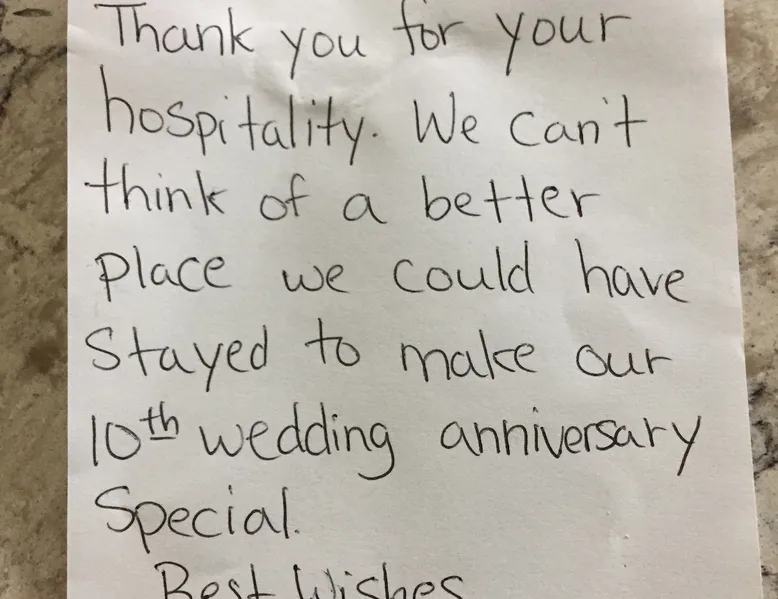 Thank you for your
hospitality. We can't
think of a better
place we could have
Stayed to make our
10th wedding anniversary
Special.
Best Wishes